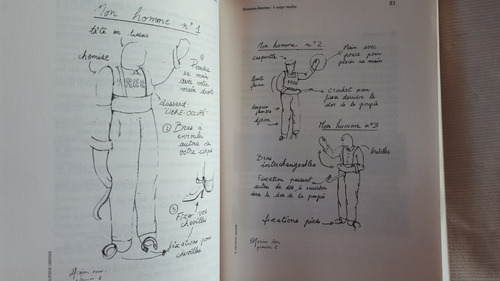 Mon homme n°1
tête en tissus
chemise
① Prendre
sa main
avec votre
main droite
LIBRE
dossard
LIBRE-OCCUPÉ
② Bras à
enrouler
autour de
votre corps
③
Fixer vos
chevilles
fixations pour
chevilles
83
Mon homme n°2
casquette
Main avec
pouce pour
placer sa main
Crochet pour
fixer derrière le
dos de la poupée
jean
Mon homme n°3
bretelles
Bras
interchangeables
Fixation passant
autour du dos à
dos de la poupée
fixations pieds